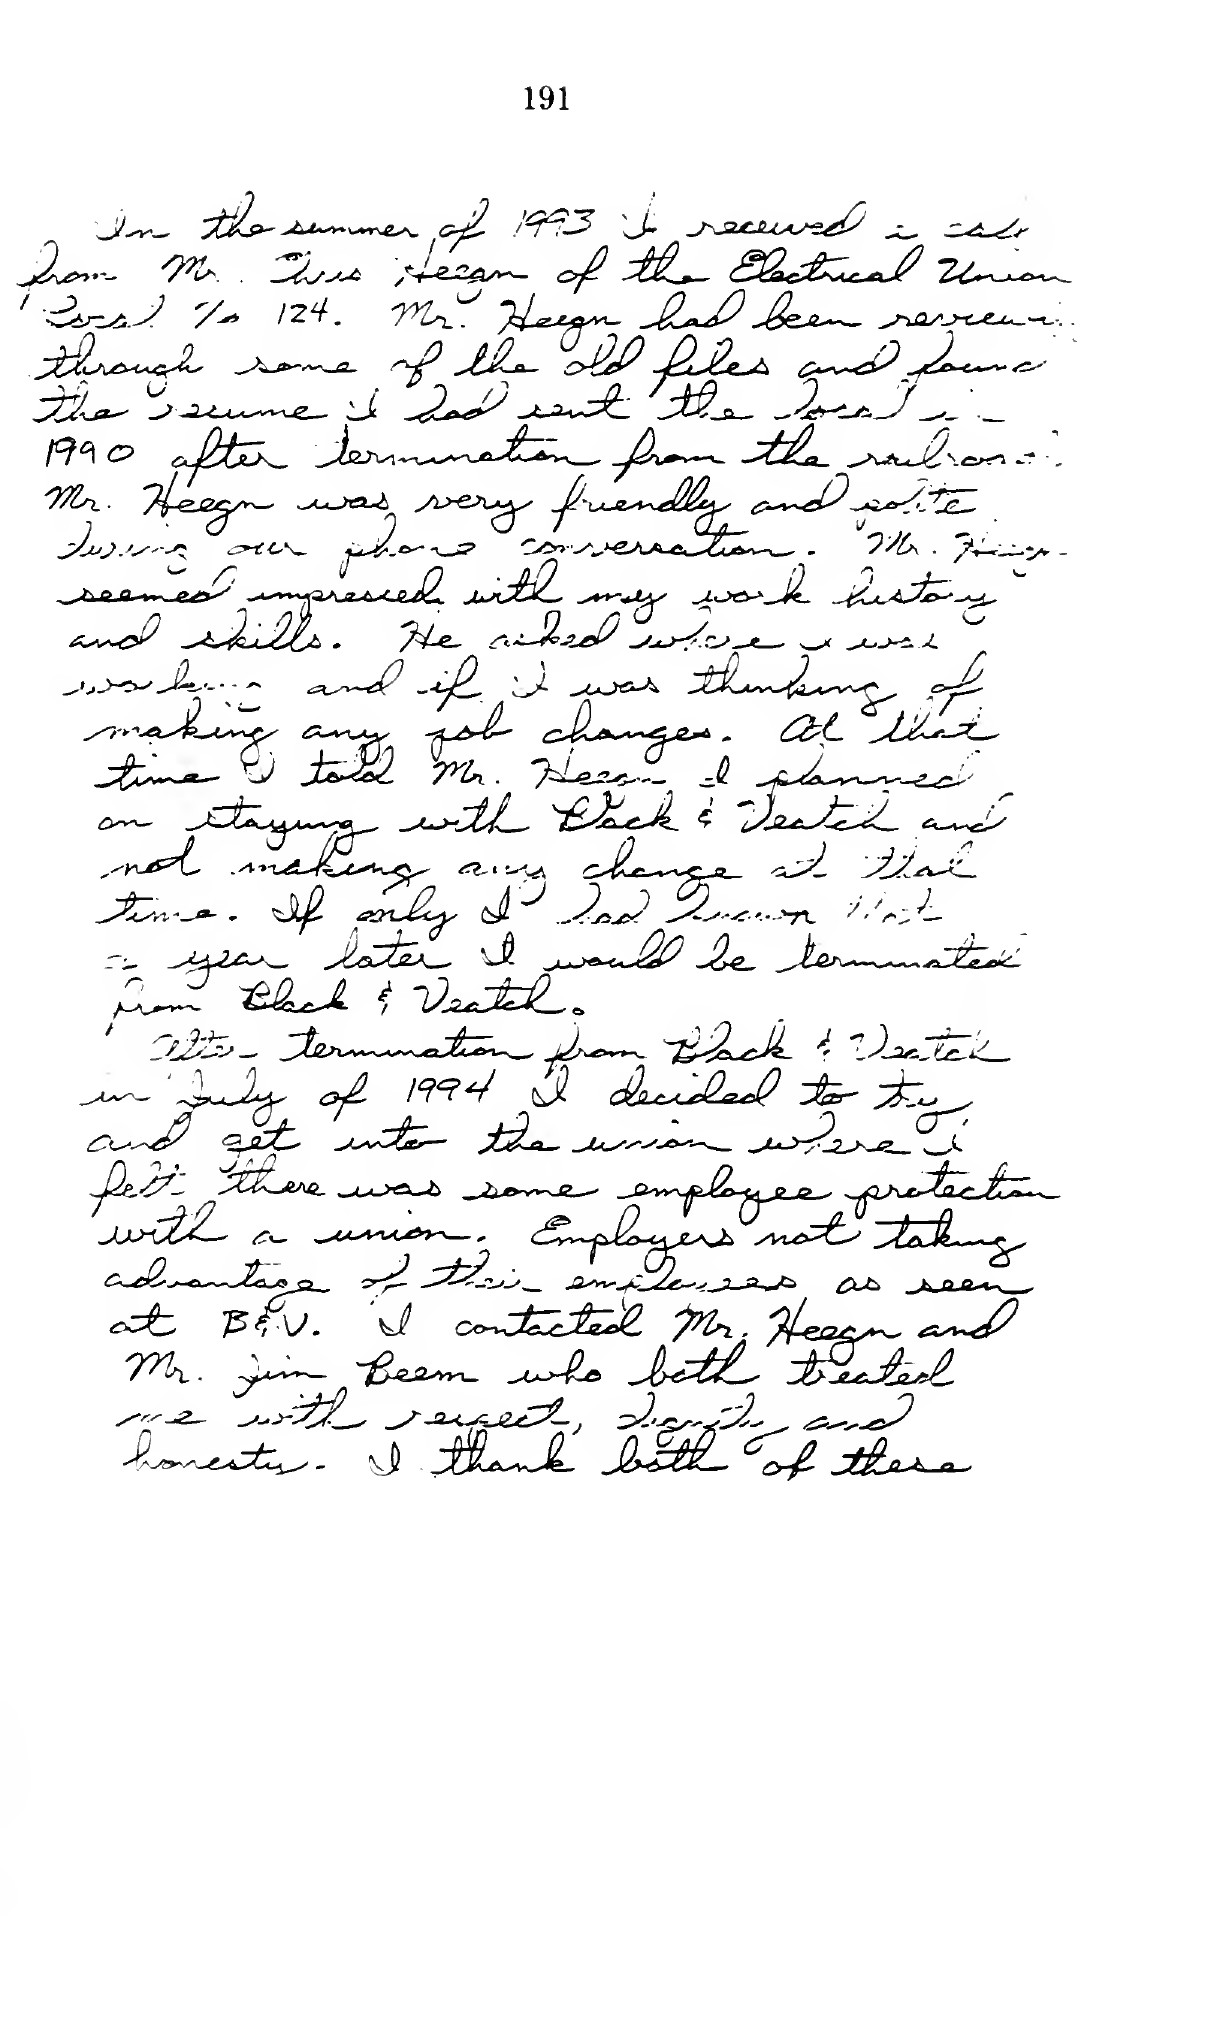 191
In the summer of 1993 I received a call
from Mr. Heegn of the Electrical Union
Local 124. Mr. Heegn had been
through some of the old files and found
the resume I had sent the local in
1990 after termination from the railroad.
Mr. Heegn was very friendly and polite
during our phone conversation. Mr. Heegn
seemed impressed with my work history
and skills. He asked where I was
working and if I was thinking of
making any job changes. At that
time I told Mr. Heegn I planned
on staying with Black & Veatch and
not making any change at that
time. If only I had known that
a year later I would be terminated
from Black & Veatch.
After termination from Black & Veatch
in July of 1994 I decided to try
and get into the union where I
felt there was some employee protection
with a union. Employers not taking
advantage of their employees as seen
at B&V. I contacted Mr. Heegn and
Mr. Jim Beem who both treated
me with respect, dignity and
honesty. I thank both of these